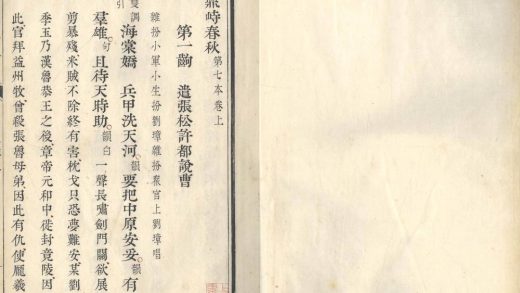 鼎峙春秋 第七本卷上
第一齣 遣張松許都說曹
雜扮小軍小生扮劉璋雜扮眾官上劉璋唱
雙調引 海棠嬌 兵甲洗天河韻要把中原安妥韻有
羣雄句且待天時助韻白一聲長嘯劍門關欲展
剪暴殘米賊不除終有害枕戈只恐夢難安某劉
季玉乃漢魯恭王之後章帝元和中徙封竟陵因
此官拜益州牧曾殺張魯母弟因此有仇使龐羲